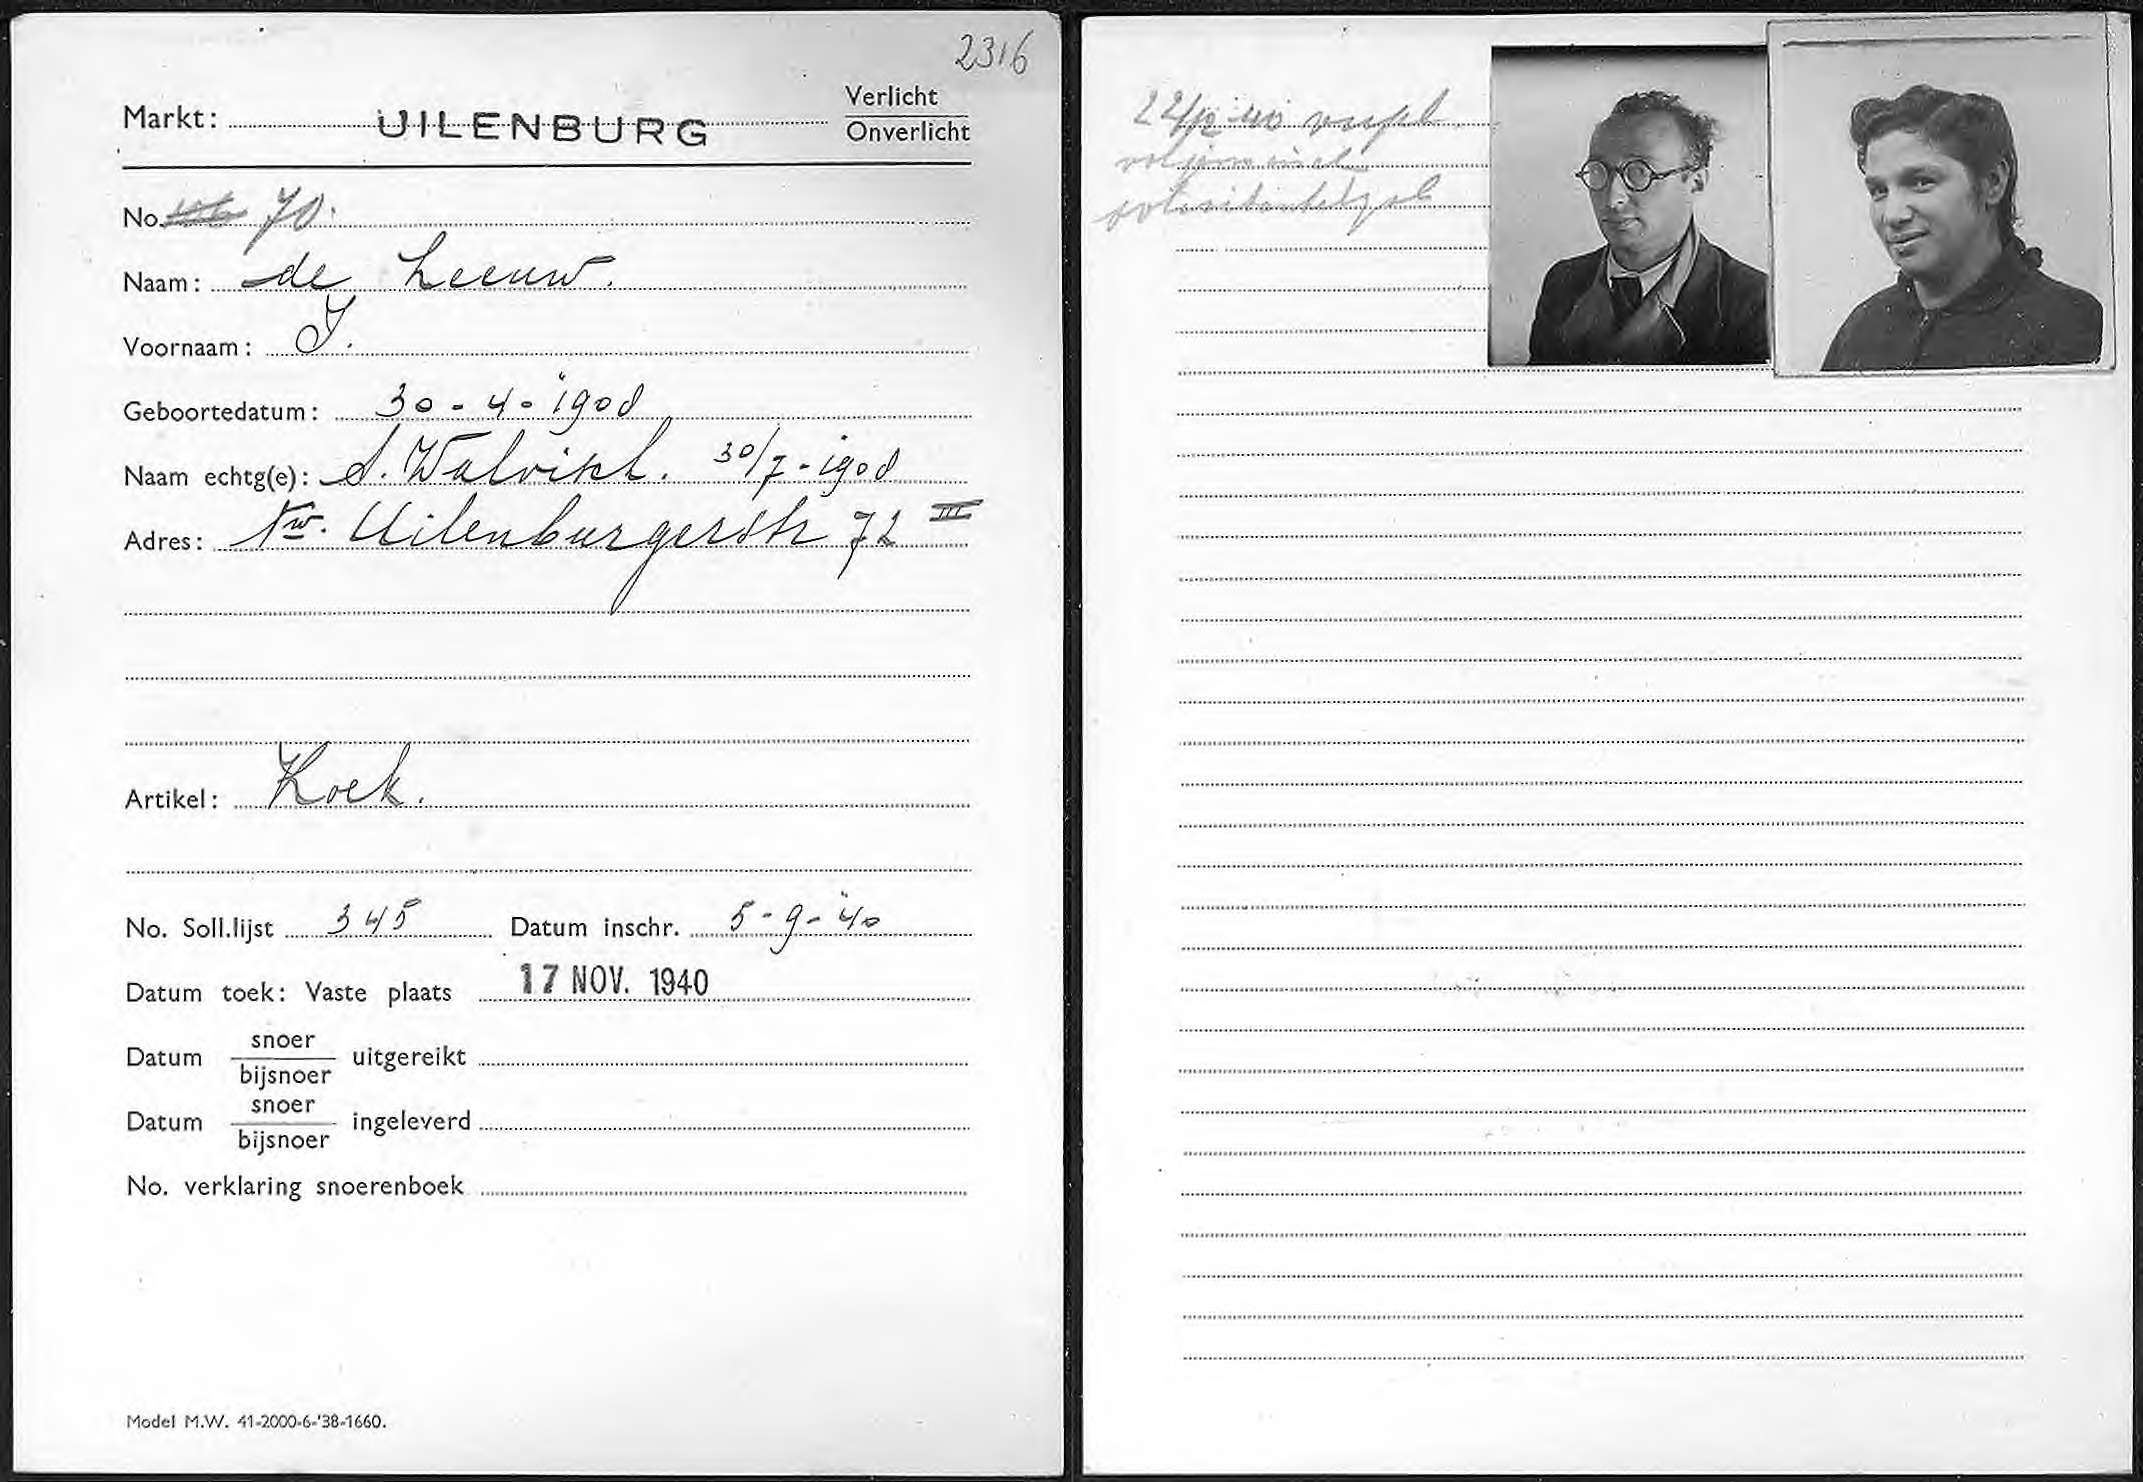 2316
Markt: UILENBURG
Verlicht
Onverlicht
No. 70.
Naam: de Leeuw.
Voornaam: J.
Geboortedatum: 30-4-1908
Naam echtg(e): S. Walvisch. 30/7-1908
Adres: Nw. Uilenburgerstr 72 III
Artikel: Koek.
No. Soll.lijst 345 Datum inschr. 5-9-'40
Datum toek: Vaste plaats 17 NOV. 1940
Datum snoer
bijsnoer uitgereikt
Datum snoer
bijsnoer ingeleverd
No. verklaring snoerenboek
Model M.W. 41-2000-6-'38-1660.